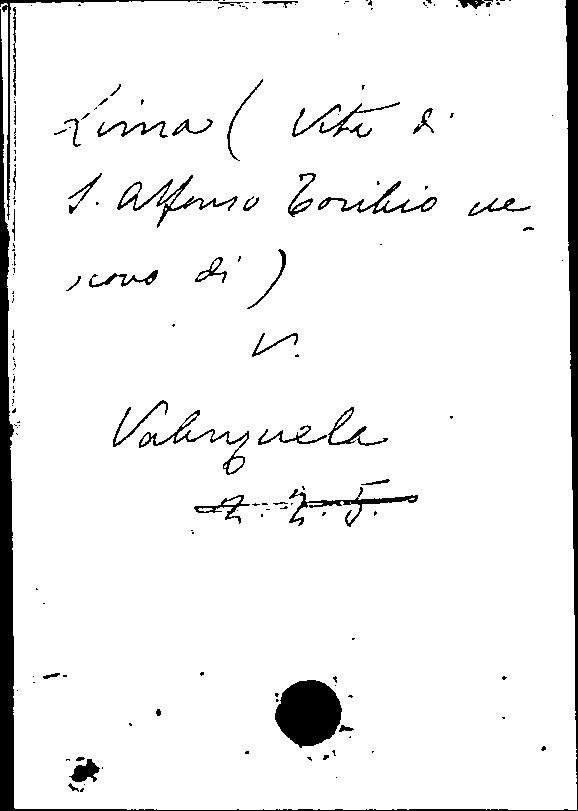 Lima (Vita di
S. Alfonso Toribio ve-
scovo di)
V.
Valenzuela
2. 2. 5.